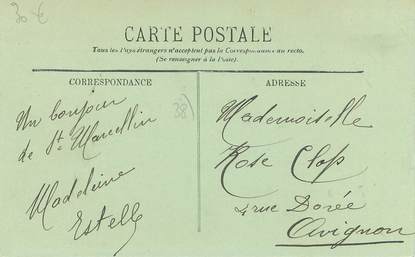 30 €
CARTE POSTALE
Tous les Pays étrangers n'acceptent pas la Correspondance au recto.
(Se renseigner à la Poste).
CORRESPONDANCE
Un bonjour
de St Marcellin
Madeleine
Estelle
38
ADRESSE
Mademoiselle
Rose Clop
4 rue Dorée
Avignon